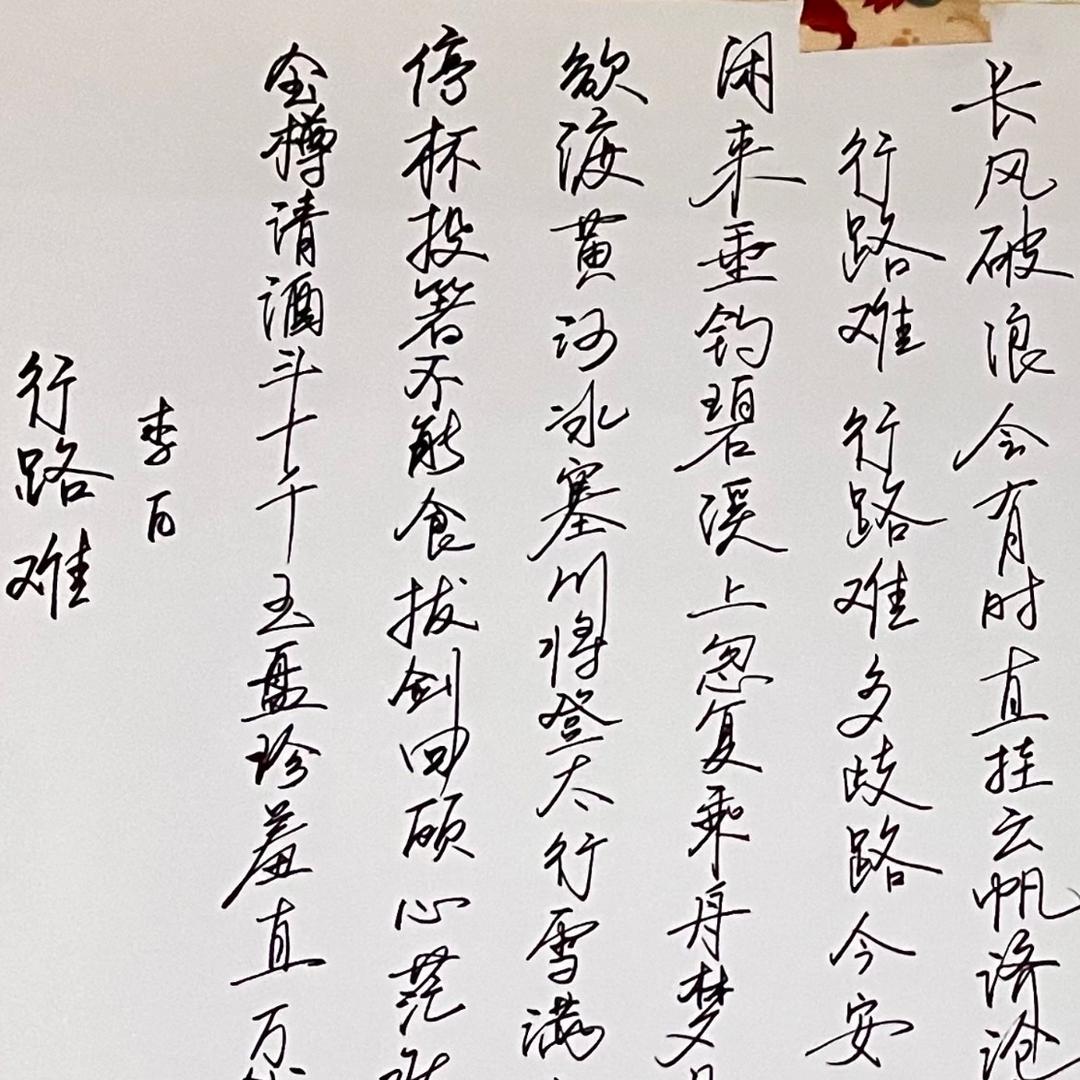 行路难
李白
金樽清酒斗十千玉盘珍羞直万
停杯投箸不能食拔剑四顾心茫
欲渡黄河冰塞川将登太行雪满
闲来垂钓碧溪上忽复乘舟梦
行路难 行路难 多歧路今安
长风破浪会有时直挂云帆济沧